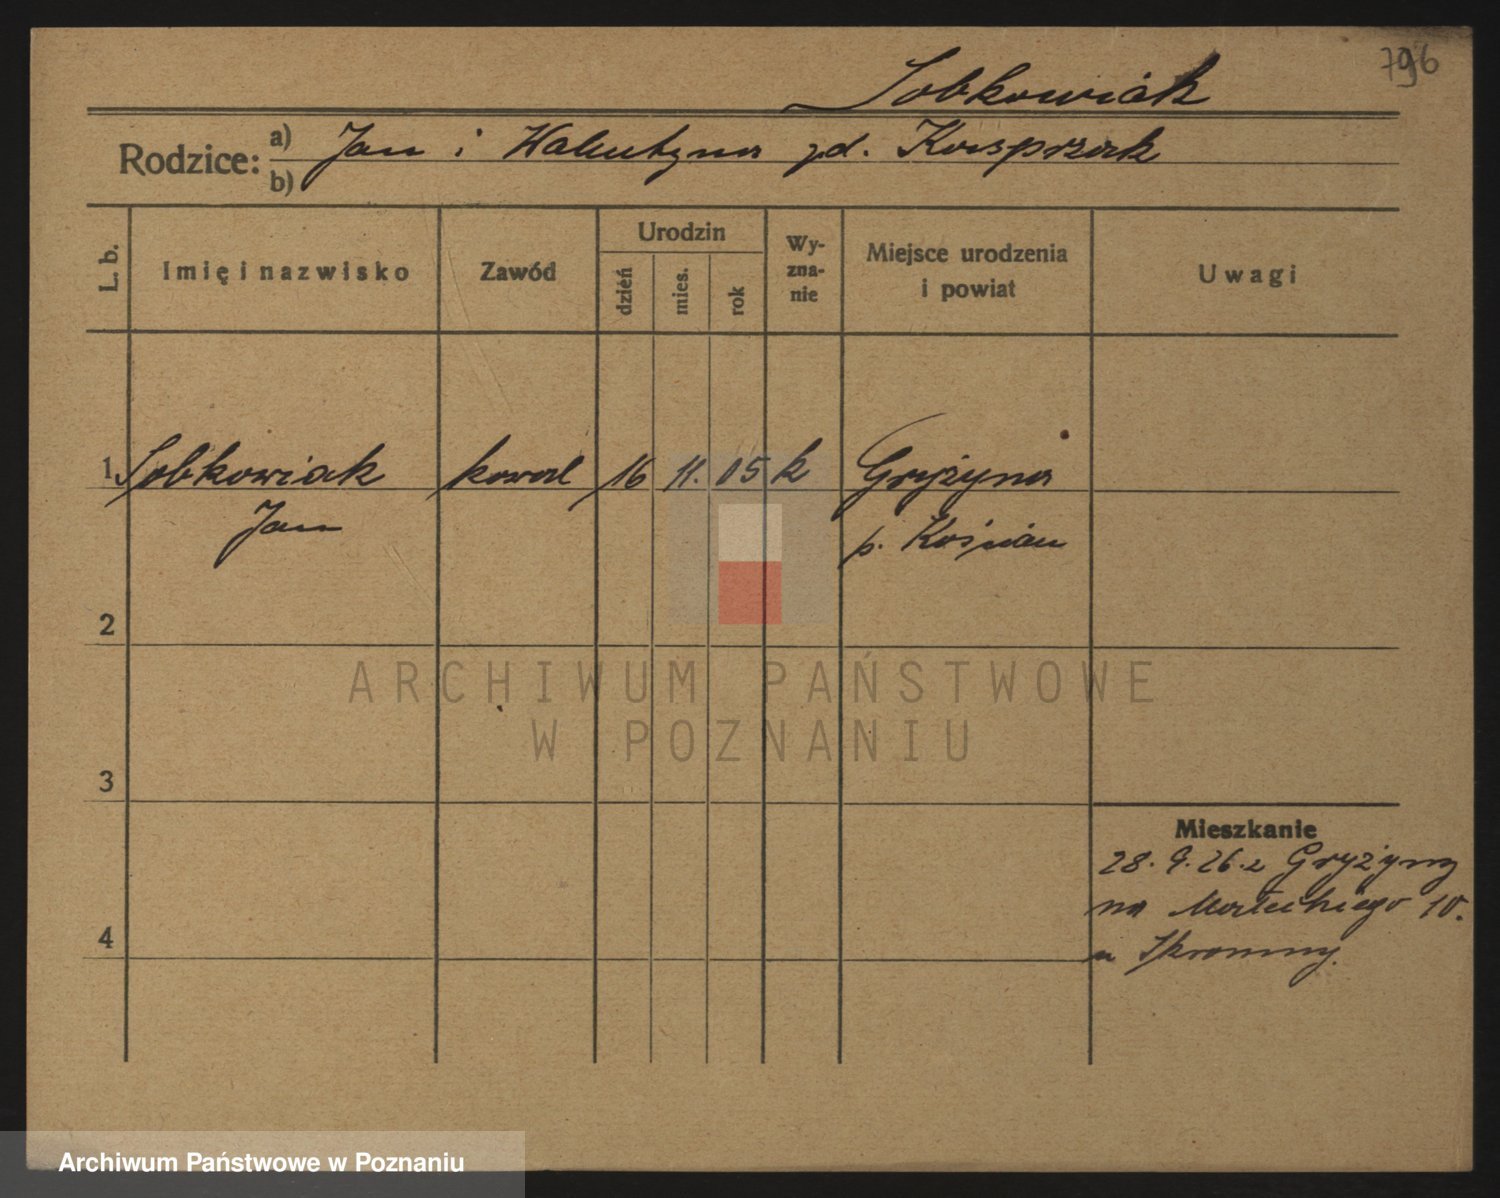 796
Sobkowiak
Rodzice: a) Jan i Walentyna zd. Kasprzak
b)
L. b.
Imię i nazwisko
Zawód
Urodzin
dzień
mies.
rok
Wy-
zna-
nie
Miejsce urodzenia
i powiat
Uwagi
1 Sobkowiak kowal 16 11. 05 k Gryżyna
Jan p. Kościan
2
3
4
Mieszkanie
28. 9. 26. z Gryżyny
na Małeckiego 10.
u Skromny.
ARCHIWUM PAŃSTWOWE
W POZNANIU
Archiwum Państwowe w Poznaniu